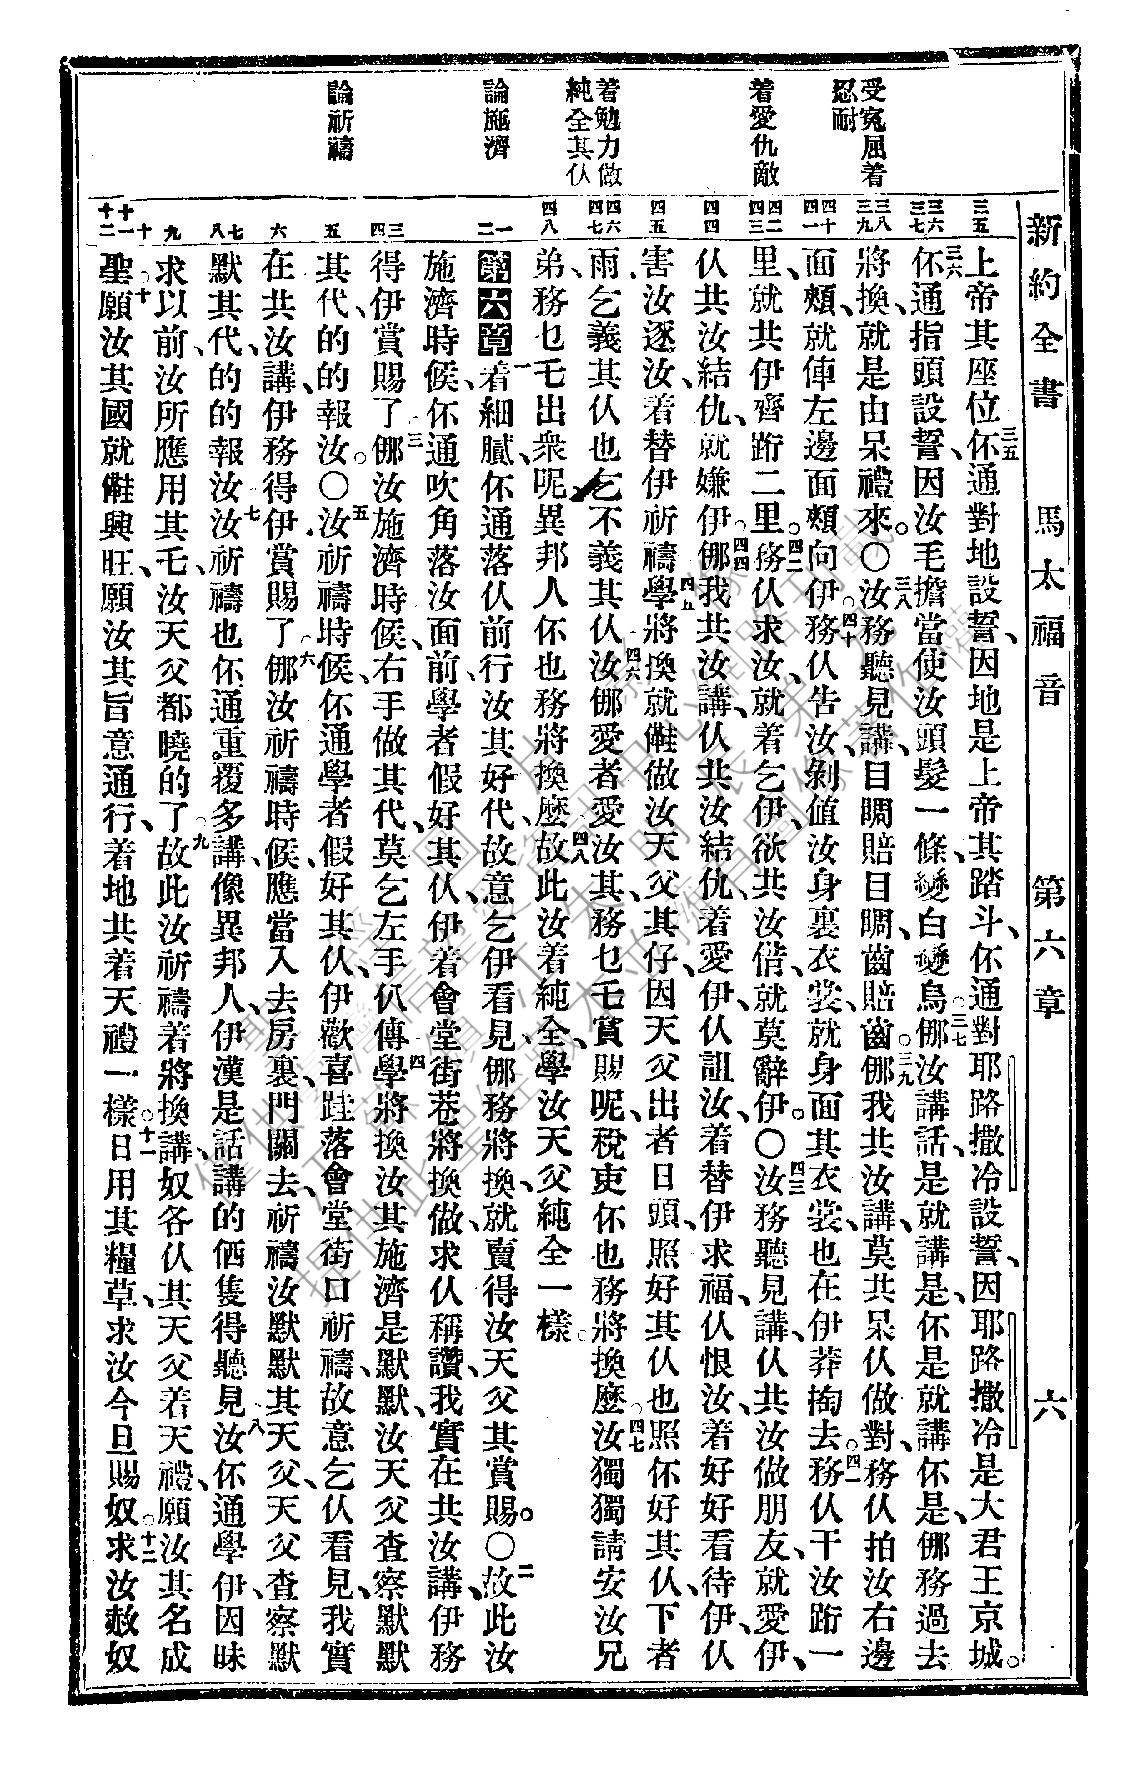 新約全書 馬太福音 第六章 六
受寃屈着
忍耐
着愛仇敵
着勉力做
純全其仈
論施濟
論祈禱
三五
三六
三七
三八
三九
四十
四一
四二
四三
四四
四五
四六
四七
四八
一
二
三
四
五
六
七
八
九
十
十一
十二
上帝其座位、三五伓通對地設誓、因地是上帝其踏斗、伓通對耶路撒冷設誓、因耶路撒冷是大君王京城。
三六伓通指頭設誓、因汝毛擔當使汝頭髮一條變白變烏。三七㑚汝講話是就講是、伓是就講伓是、㑚務過去
將換、就是由呆禮來。〇三八汝務聽見講、目睭賠目睭、齒賠齒。三九㑚我共汝講、莫共呆仈做對、務仈拍汝右邊
面頰、就俥左邊面頰向伊。四十務仈告汝、剝値汝身裏衣裳、就身面其衣裳、也在伊莽掏去。四一務仈干汝䟰一
里、就共伊齊䟰二里。四二務仈求汝、就着乞伊、欲共汝借、就莫辭伊。〇四三汝務聽見講、仈共汝做朋友、就愛伊、
仈共汝結仇、就嫌伊。四四㑚我共汝講、仈共汝結仇、着愛伊、仈詛汝、着替伊求福、仈恨汝、着好好看待伊、仈
害汝逐汝、着替伊祈禱。四五學將換就𣍐做汝天父其仔、因天父出者日頭、照好其仈、也照伓好其仈、下者
雨、乞義其仈、也乞不義其仈。四六汝㑚愛者愛汝其、務乜乇賞賜呢、稅吏伓也務將換麽。四七汝獨獨請安汝兄
弟、務乜乇出衆呢、異邦人伓也務將換麽。四八故此汝着純全、學汝天父純全一樣。
第六章一着細膩、伓通落仈前行汝其好代、故意乞伊看見、㑚務將換、就賣得汝天父其賞賜。〇二故此汝
施濟時候、伓通吹角落汝面前、學者假好其仈、伊着會堂街巷將換做、求仈稱讚、我實在共汝講、伊務
得伊賞賜了。三㑚汝施濟時候、右手做其代、莫乞左手仈傳。四學將換汝其施濟是默默、汝天父查察默默
其代、的的報汝。〇五汝祈禱時候、伓通學者假好其仈、伊歡喜跬落會堂街口祈禱、故意乞仈看見、我實
在共汝講、伊務得伊賞賜了。六㑚汝祈禱時候、應當入去房裏、門關去、祈禱汝默默其天父、天父查察默
默其代、的的報汝。七汝祈禱也伓通重覆多講、像異邦人、伊漢是話講的価隻得聽見。八汝伓通學伊、因昧
求以前、汝所應用其乇、汝天父都曉的了。九故此汝祈禱着將換講、奴各仈其天父着天禮、願汝其名成
聖。十願汝其國就𣍐興旺、願汝其旨意通行、着地共着天禮一樣。十一日用其糧草、求汝今旦賜奴。十二求汝赦奴